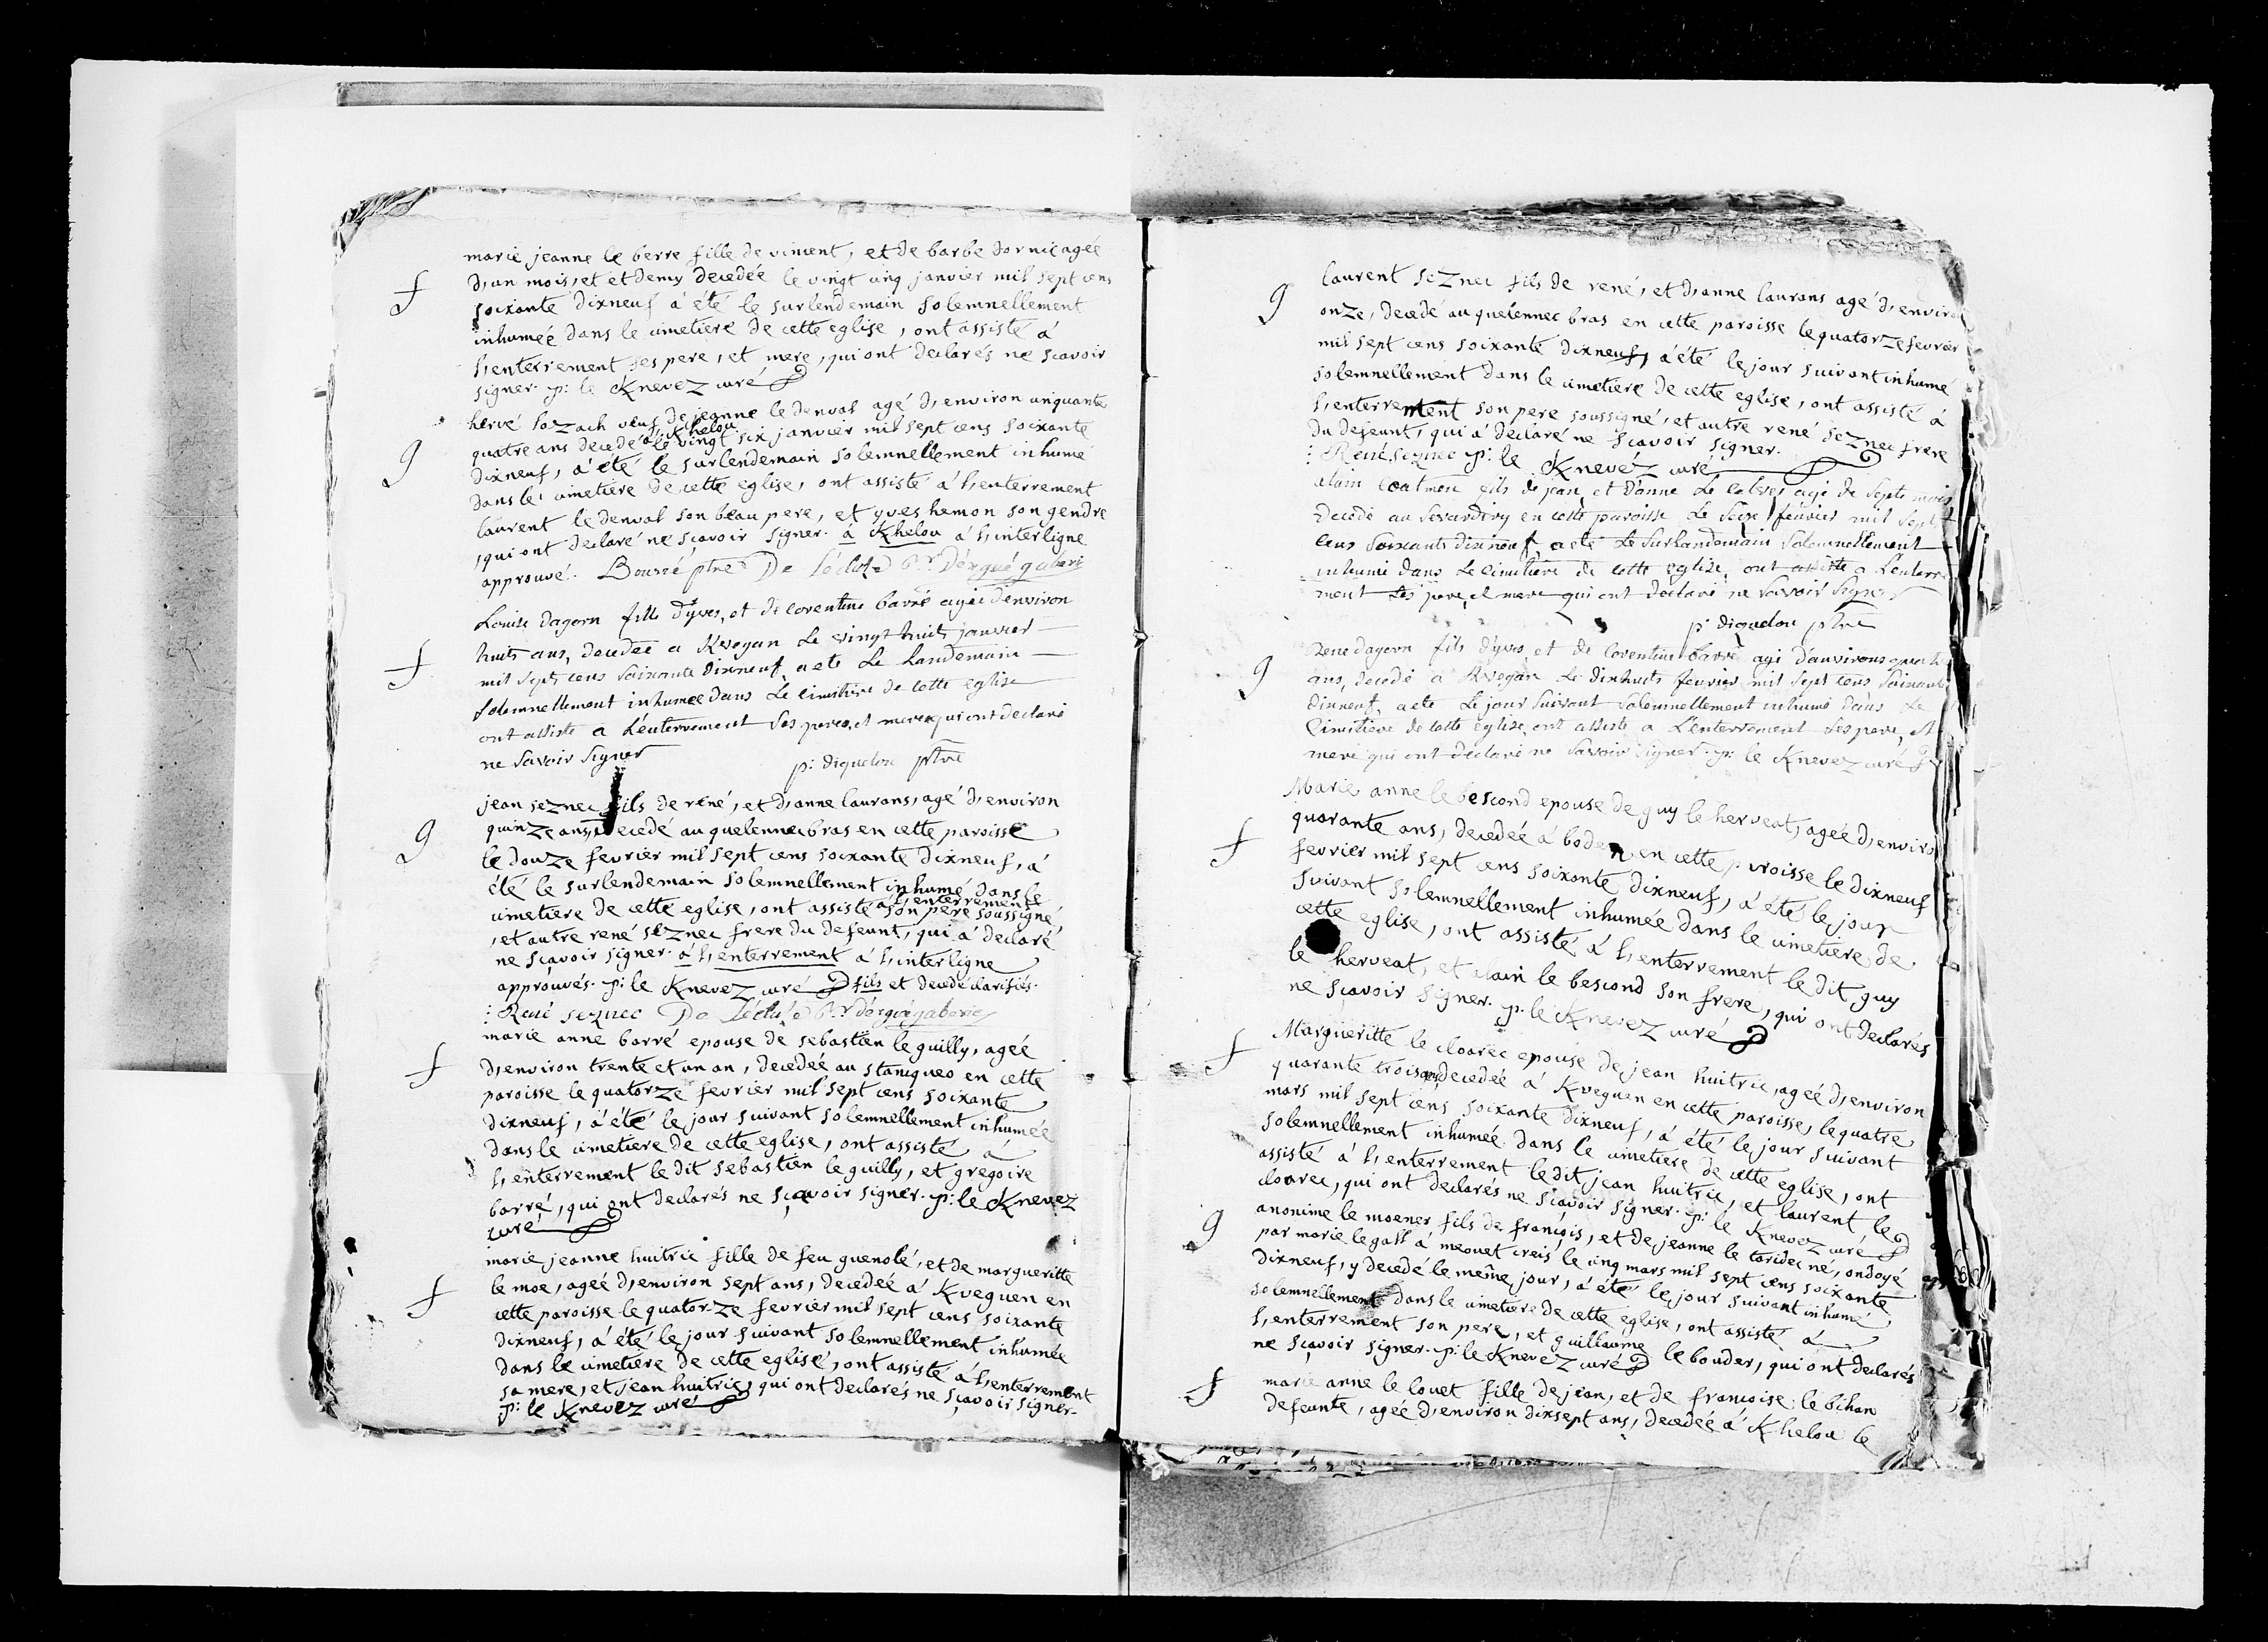 marie jeanne le berre fille de vincent, et de barbe dornic agée
f
d,un mois, et et demy decedée le vingt cinq janvier mil sept cens
soixante dixneuf à été le surlendemain solemnellement
inhumée dans le cimetiere de cette eglise, ont assisté à
l,enterrement ses pere, et mere, qui ont declarés ne sçavoir
signer. p: le Knevez curé
hervé lozach veuf de jeanne le denval agé d,environ cinquante
a Khelou
quatre ans decedé le vingt six janvier mil sept cens soixante
g
dixneuf, à été le surlendemain solemnellement inhume
dans le cimetiere de cette eglise, ont assisté à l,enterrement
laurent le denval son beau pere, et yves hemon son gendre
,qui ont declaré ne sçavoir signer. à Khelou à l,interligne
approuvé. Bourré ptre De Lécluze r.r d'ergué gaberic
Louise dagorn fille d'yves, et de corentine barré agée d'environ
f
huits ans, decedée a Kvegan Le vingt huits janvier
mil septs cens soixante dixneuf, a ete Le Landemain
Solemnellement inhumee dans Le cimitiere de cette eglise
ont assiste a L'enterrement Ses peres, et meres qui ont declaré
ne Savoir Signer
p: diquelou ptre
jean seznec fils de rené, et d,anne laurans, agé d,environ
g
quinze ans, decedé au quelennec bras en cette paroisse
le douze fevrier mil sept cens soixante dixneuf, à
été le surlendemain solemnellement inhumé dans le
à l,enterrement
cimetiere de cette eglise, ont assisté son pere soussigné
, et autre rené seznec frere du defeunt, qui à declaré
ne sçavoir signer. à l,enterrement à l,interligne
approuvés. p: le Knevez curé fils et decedé clarifiés.
René seznec De Lécluze r.r d'ergué gaberic
marie anne barré epouse de sebastien le guilly, agée
f
d,environ trente et un an, decedée au staniqueo en cette
paroisse le quatorze fevrier mil sept cens soixante
dixneuf, à été le jour suivant solemnellement inhumée
dans le cimetiere de cette eglise, ont assisté à
l,enterrement le dit sebastien le guilly, et gregoire
barré, qui ont declarés ne sçavoir signer. p: le Knevez
curé
marie jeanne huitric fille de feu guenolé, et de margueritte
f
le moe, agée d,environ sept ans, decedée à Kveguen en
cette paroisse le quatorze fevrier mil sept cens soixante
dixneuf, à été le jour suivant solemnellement inhumée
dans le cimetiere de cette eglise, ont assisté à l,enterrement
sa mere, et jean huitric, qui ont declarés ne sçavoir signer.
p: le Knevez curé
laurent seznec fils de rené, et d,anne laurans agé d,environ
g
onze, decedé au quelennec bras en cette paroisse le quatorze fevrier
mil sept cens soixante dixneuf, à été le jour suivant inhumé
solemnellement dans le cimetiere de cette eglise, ont assisté à
l,enterrement son pere soussigné, et autre rené seznec frere
du defeunt, qui à declaré ne sçavoir signer.
René seznec p: le Knevéz curé
alain coatmen fils de jean, et d'anne Le calvez agé de septs mois
decedé au en cette paroisse Le Seize fevrier mil Septs
cens Soixante dixneuf, a eté Le Surlandemain Solemnellement
inhumé dans Le cimitiere de cette eglise, ont assiste a L'enterre
ment Ses pere, et mere qui ont declaré ne Savoir Signer
p: diquelou ptre
g
René dagorn fils d'yves, et de Corentine barré agé d'anvirons quatre
ans, decedé a Kvegan Le dixhuits fevrier mil Sept cens Soixante
dixneuf, a ete Le jour Suivant Solemnellement inhumé dans Le
Cimitiere de cette eglise, ont assiste a L'enterrement Ses pere, et
mere qui ont declaré ne Savoir Signer. p: le Knevez curé
Marie anne le bescond epouse de guy le herveat, agée d,environ
f
quarante ans, decedée à boden, en cette paroisse le dixneuf
fevrier mil sept cens soixante dixneuf, à été le jour
suivant solemnellement inhumée dans le cimetiere de
cette eglise, ont assisté à l,enterrement le dit guy
le herveat, et alain le bescond son frere, qui ont declarés
ne sçavoir signer. p: le Knevez curé
Margueritte le cloarec epouse de jean huitric, agée d,environ
f
quarante trois ans decedée à Kveguen en cette paroisse, le quatre
mars mil sept cens soixante dixneuf, à été le jour suivant
solemnellement inhumée dans le cimetiere de cette eglise, ont
assisté à l,enterrement le dit jean huitric, et laurent le
cloarec, qui ont declarés ne sçavoir signer. p: le Knevez curé
anonime le moener fils de françois, et de jeanne le taridec né, ondoyé
g
par marie le gall à meouet creis le cinq mars mil sept cens soixante
dixneuf, y decedé le même jour, à été le jour suivant inhumé
solemnellement dans le cimetiere de cette eglise, ont assisté à
l,enterrement son pere, et guillaume le bouder, qui ont declarés
ne sçavoir signer. p: le Knevez curé
f
marie anne le louet fille de jean, et de françoise le bihan
defeunte, agée d,environ dixsept ans, decedée à Khelou le